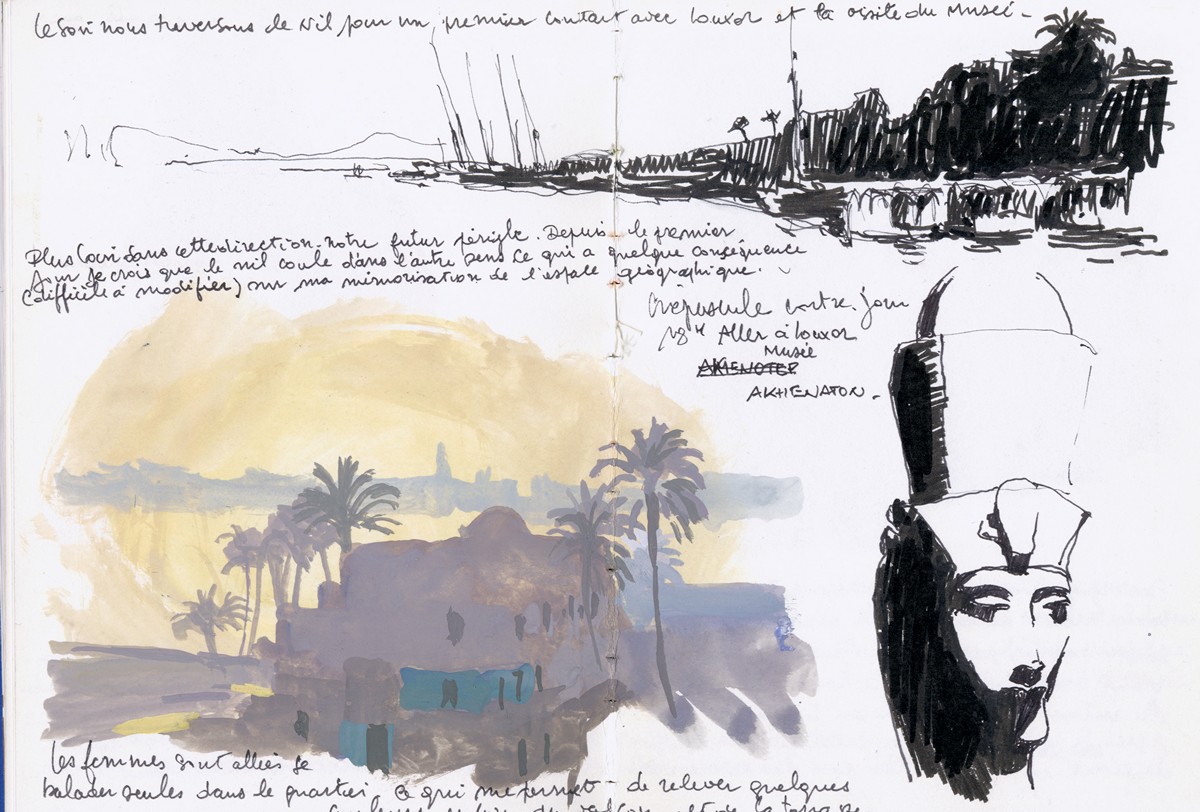 le soir nous traversons le Nil pour un premier contact avec Louxor et la visite du Musée -
Plus loin dans cette direction notre futur périple. Depuis le premier
jour je crois que le nil coule dans l'autre sens ce qui a quelque conséquence
(difficile à modifier) sur ma mémorisation de l'espace géographique.
Crépuscule contre-jour
Aller à louxor
Musée
AKHENATON.
les femmes sont allées se
balader seules dans le quartier, ce qui me permet de relever quelques
couleurs et de la terrasse